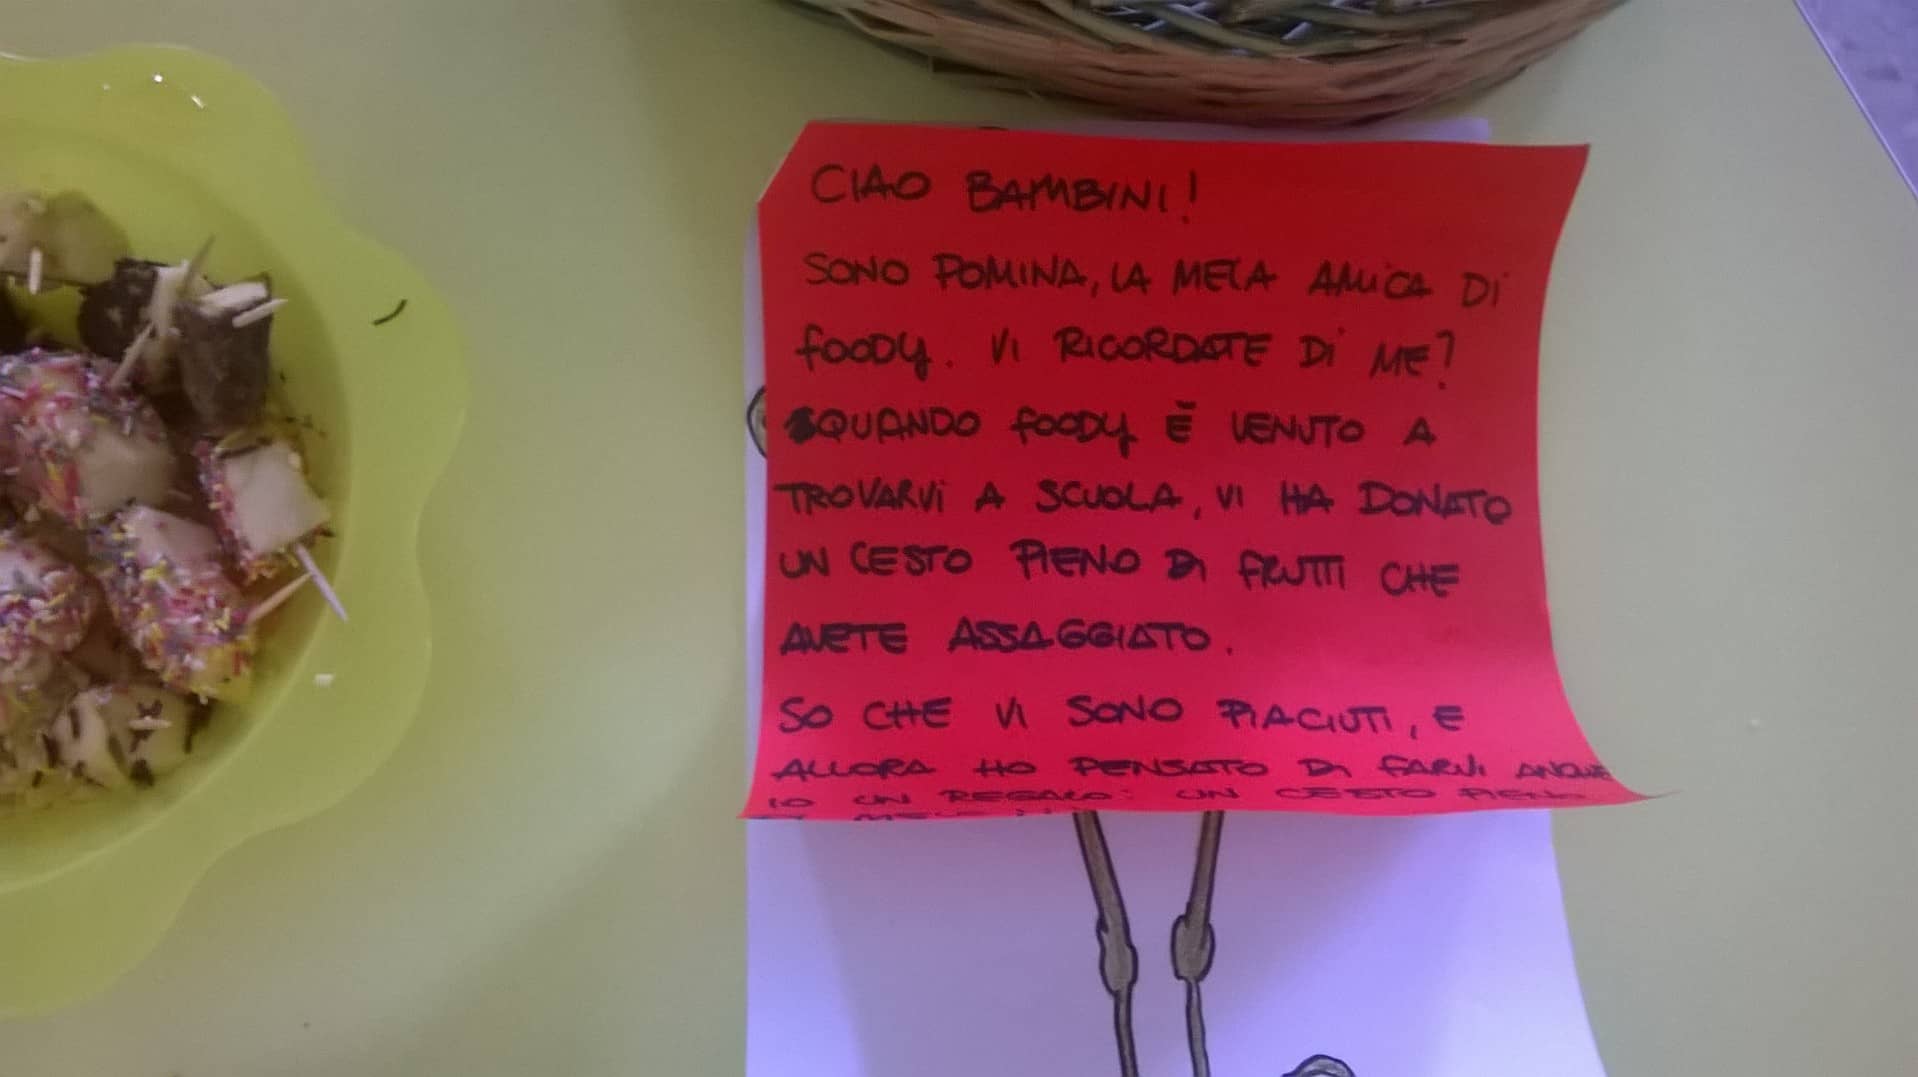 CIAO BAMBINI!
SONO POMINA, LA MELA AMICA DI
FOODY. VI RICORDATE DI ME?
QUANDO FOODY È VENUTO A
TROVARVI A SCUOLA, VI HA DONATO
UN CESTO PIENO DI FRUTTI CHE
AVETE ASSAGGIATO.
SO CHE VI SONO PIACIUTI, E
ALLORA HO PENSATO DI FARVI ANCHE
IO UN REGALO: UN CESTO PIENO